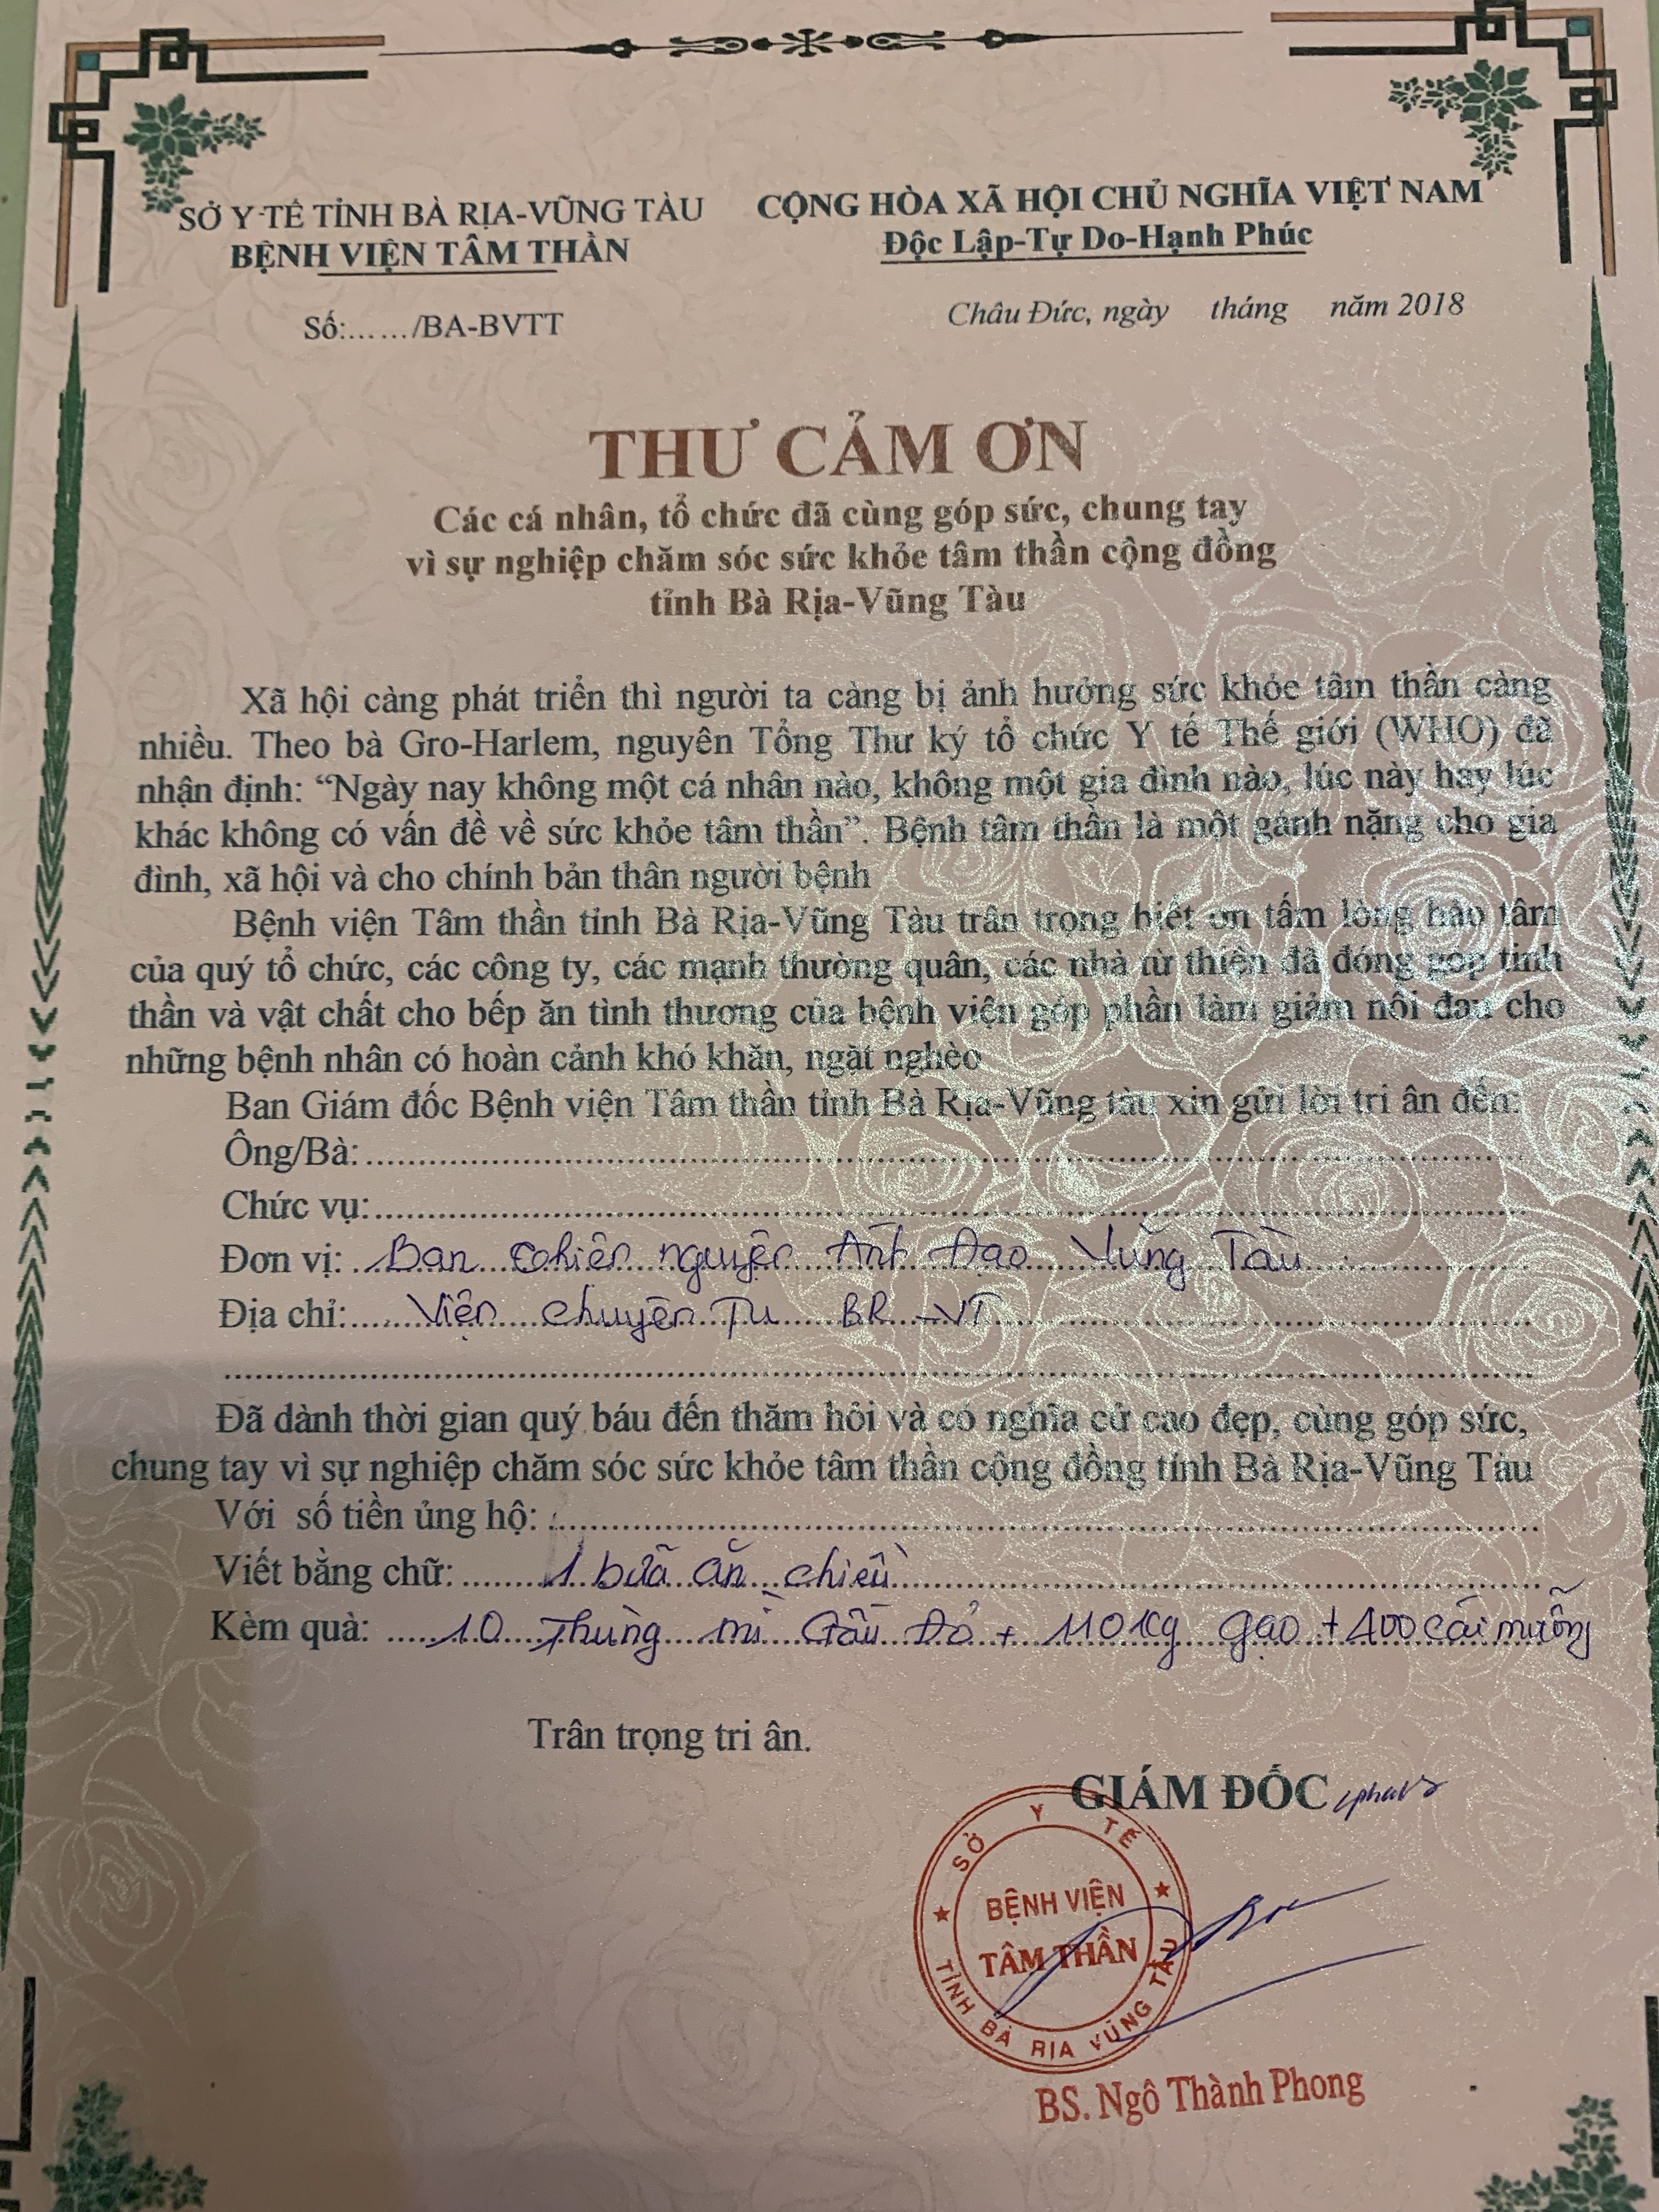 SỞ Y TẾ TỈNH BÀ RỊA-VŨNG TÀU
BỆNH VIỆN TÂM THẦN
CỘNG HÒA XÃ HỘI CHỦ NGHĨA VIỆT NAM
Độc Lập-Tự Do-Hạnh Phúc
Số:....../BA-BVTT
Châu Đức, ngày tháng năm 2018
THƯ CẢM ƠN
Các cá nhân, tổ chức đã cùng góp sức, chung tay
vì sự nghiệp chăm sóc sức khỏe tâm thần cộng đồng
tỉnh Bà Rịa-Vũng Tàu
Xã hội càng phát triển thì người ta càng bị ảnh hưởng sức khỏe tâm thần càng
nhiều. Theo bà Gro-Harlem, nguyên Tổng Thư ký tổ chức Y tế Thế giới (WHO) đã
nhận định: “Ngày nay không một cá nhân nào, không một gia đình nào, lúc này hay lúc
khác không có vấn đề về sức khỏe tâm thần”. Bệnh tâm thần là một gánh nặng cho gia
đình, xã hội và cho chính bản thân người bệnh
Bệnh viện Tâm thần tỉnh Bà Rịa-Vũng Tàu trân trọng biết ơn tấm lòng hảo tâm
của quý tổ chức, các công ty, các mạnh thường quân, các nhà từ thiện đã đóng góp tinh
thần và vật chất cho bếp ăn tình thương của bệnh viện góp phần làm giảm nỗi đau cho
những bệnh nhân có hoàn cảnh khó khăn, ngặt nghèo
Ban Giám đốc Bệnh viện Tâm thần tỉnh Bà Rịa-Vũng tàu xin gửi lời tri ân đến:
Ông/Bà:
Chức vụ:
Đơn vị: Ban thiện nguyện Anh Đạo Vũng Tàu
Địa chỉ: Viện chuyên Tu BR-VT
Đã dành thời gian quý báu đến thăm hỏi và có nghĩa cử cao đẹp, cùng góp sức,
chung tay vì sự nghiệp chăm sóc sức khỏe tâm thần cộng đồng tỉnh Bà Rịa-Vũng Tàu
Với số tiền ủng hộ:
Viết bằng chữ: 1 bữa ăn chiều
Kèm quà: 10 Thùng mì Gấu Đỏ + 110 Kg gạo + 400 cái muỗng
Trân trọng tri ân.
GIÁM ĐỐC
SỞ Y TẾ
BỆNH VIỆN
TÂM THẦN
TỈNH BÀ RỊA VŨNG TÀU
BS. Ngô Thành Phong